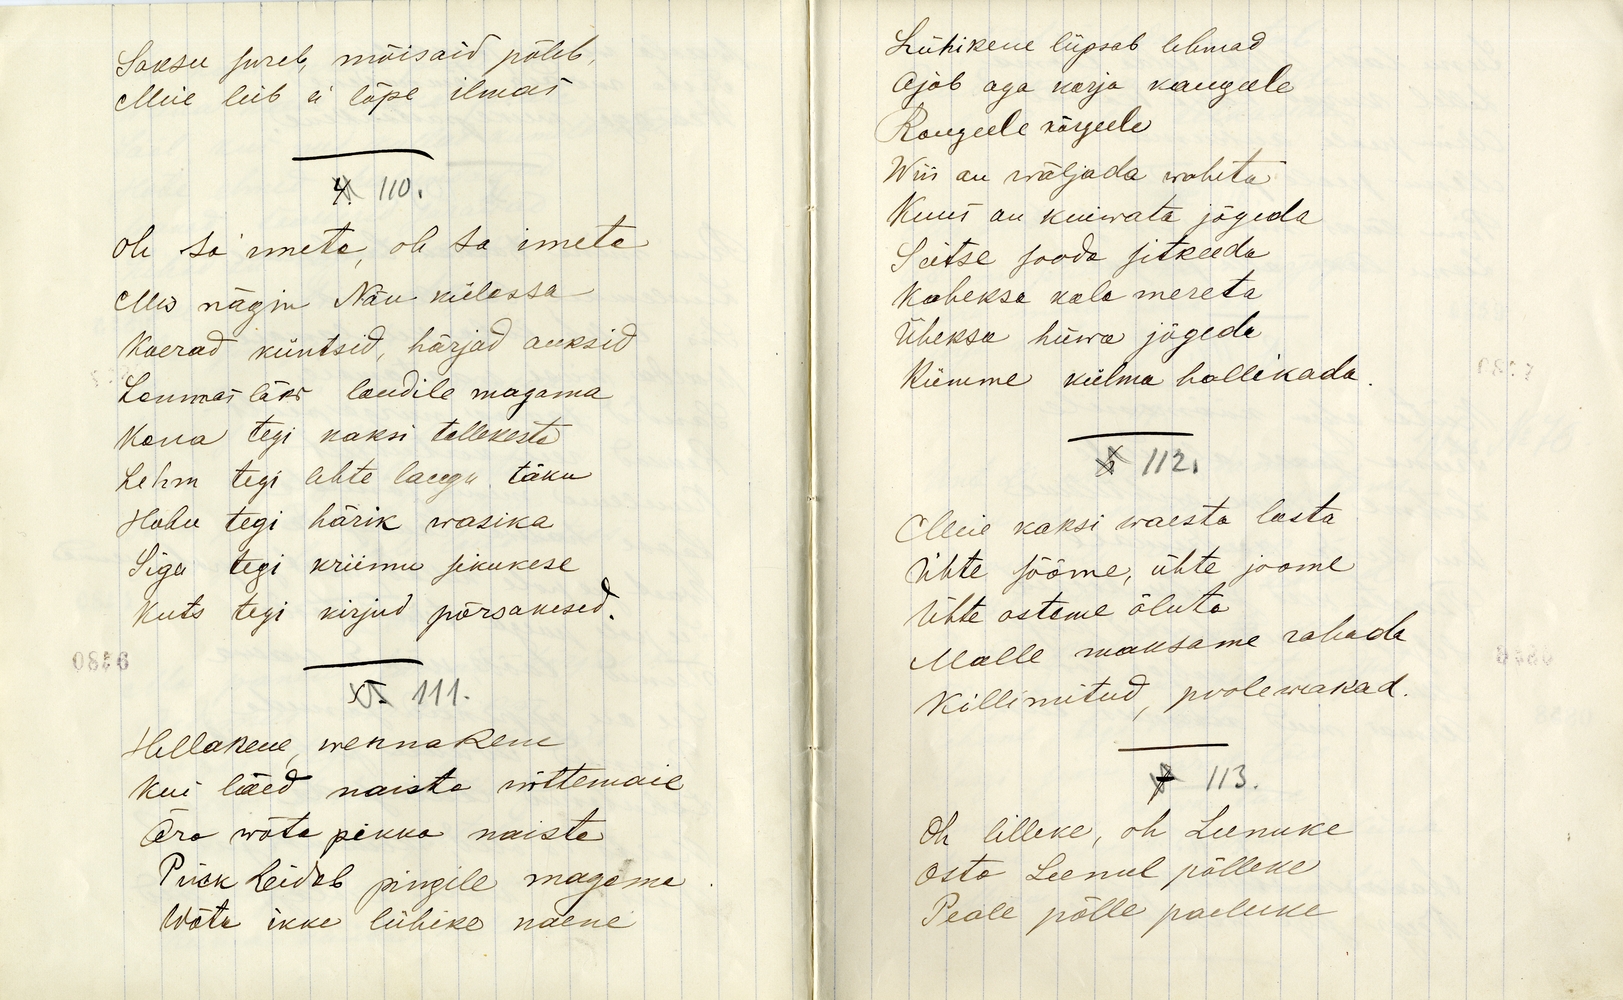 Saksu sureb, mõisaid põleb,
Meie leib ei lõpe ilmas
110.
Oh sa imeta, oh sa imeta
Mis nägin Nõu külassa
Koerad küntsid, härjad auksid
Lammas läks laudile magama
Kana tegi kaksi tallekesta
Lehm tegi ühte laugu täku
Hobu tegi härik wasika
Siga tegi kriimu sikukese
Kuts tegi kirjud põrsakesed.
111.
Hellakene, wennakene
Kui lääd naista wõttemaie
Ära wõta pikka naista
Pikk heidab pingile magama
Wõta ikke lühike naene
Lühikene lüpsab lehmad
Ajab aga karja kaugeele
Kaugeele kõrgeele
Wiis au wäljada wahita
Kuus au kuiwata jõgeda
Seitse sooda sitkeeda
Kaheksa kala mereta
Üheksa hüwa jõgeda
Kümme külma hallikada.
112.
Meie kaksi waesta lasta
Ühte sööme, ühte joome
Ühte ostame õluta
Malle maksame rahada
Killimitud, poolewakad.
113.
Oh lilleke, oh Leenuke
Osta Leenul põlleke
Peale põlle paeluke